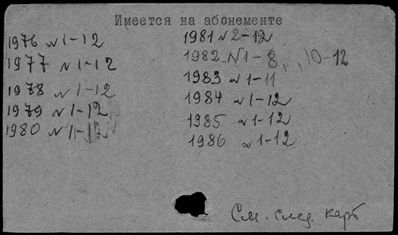 Имеется на абонементе
1976 N 1-12
1977 N 1-12
1978 N 1-12
1979 N 1-12
1980 N 1-12
1981 N 2-12
1982 N 1-8, 10-12
1983 N 1-11
1984 N 1-12
1985 N 1-12
1986 N 1-12
См. след. карт